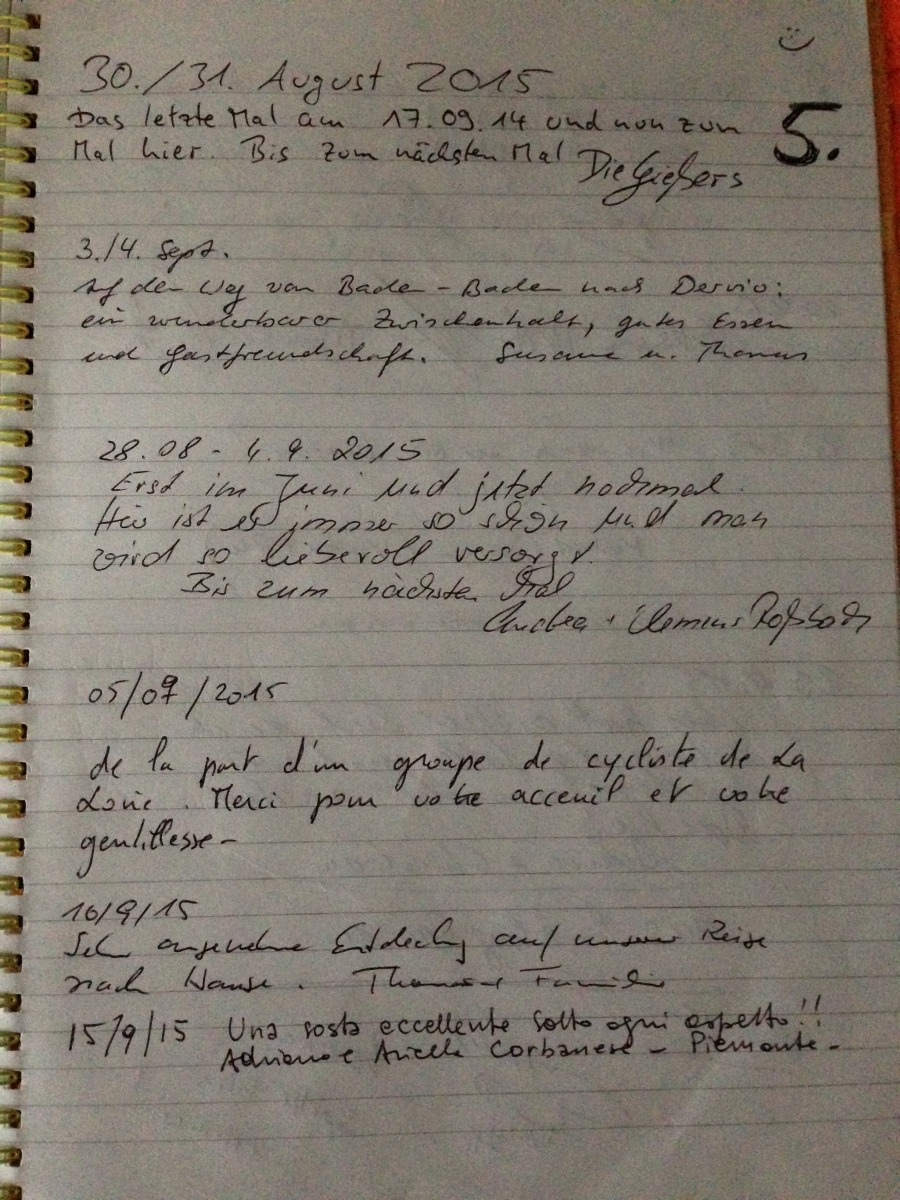 30./31. August 2015
Das letzte Mal am 17.09.14 und nun zum 5.
Mal hier. Bis zum nächsten Mal
Die Gießers
3./4. Sept.
Auf dem Weg von Baden-Baden nach Dervio:
ein wunderbarer Zwischenhalt, gutes Essen
und Gastfreundschaft. Susanne u. Thomas
28.08 - 4.9. 2015
Erst im Juni und jetzt nochmal.
Hier ist es immer so schön und man
wird so liebevoll versorgt.
Bis zum nächsten Mal
Andrea + Clemens Roßbach
05/09/2015
de la part d'un groupe de cycliste de La
Loire. Merci pour votre acceuil et votre
gentillesse-
10/9/15
Sehr angenehme Entdeckung auf unserer Reise
nach Hause. Thomas Familie
15/9/15 Una sosta eccellente sotto ogni aspetto!!
Adriano e Ariella Corbanese - Piemonte-